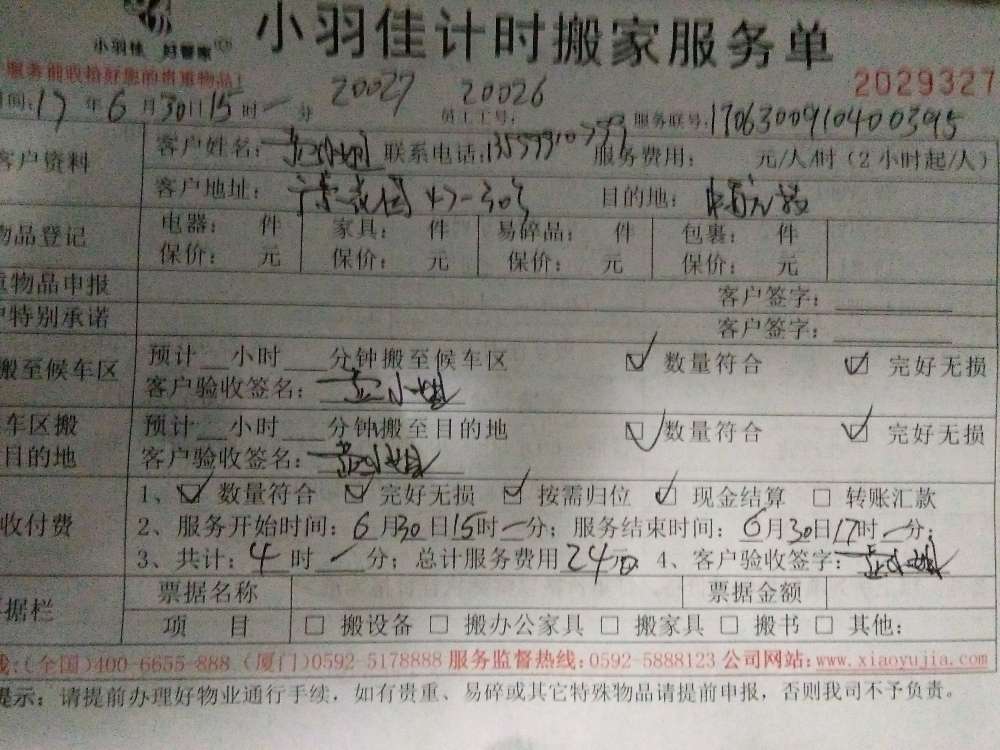 小羽佳 好管家
小羽佳计时搬家服务单
服务前收拾好您的贵重物品!
2029327
时间:17年6月30日15时一分 20027 员工工号: 20026 服务联号:17063009104000395
客户资料 客户姓名: 联系电话: 服务费用: 元/人/时(2小时起/人)
客户地址: 目的地:
物品登记 电器: 件 家具: 件 易碎品: 件 包裹: 件
保价: 元 保价: 元 保价: 元 保价: 元
物品申报 客户签字:
特别承诺 客户签字:
搬至候车区 预计__小时___分钟搬至候车区 ☑ 数量符合 ☑ 完好无损
客户验收签名: 小姐
车区搬 预计__小时___分钟搬至目的地 ☑ 数量符合 ☑ 完好无损
目的地 客户验收签名: 小姐
收付费 1、☑ 数量符合 ☑ 完好无损 ☑ 按需归位 ☑ 现金结算 □ 转账汇款
2、服务开始时间:6月30日15时一分;服务结束时间:6月30日17时一分;
3、共计:4时一分;总计服务费用24元 4、客户验收签字: 小姐
据栏 票据名称 票据金额
项 目 □ 搬设备 □ 搬办公家具 □ 搬家具 □ 搬书 □ 其他:
线:(全国)400-6655-888 (厦门)0592-5178888 服务监督热线:0592-5888123 公司网站:www.xiaoyujia.com
提示:请提前办理好物业通行手续,如有贵重、易碎或其它特殊物品请提前申报,否则我司不予负责。